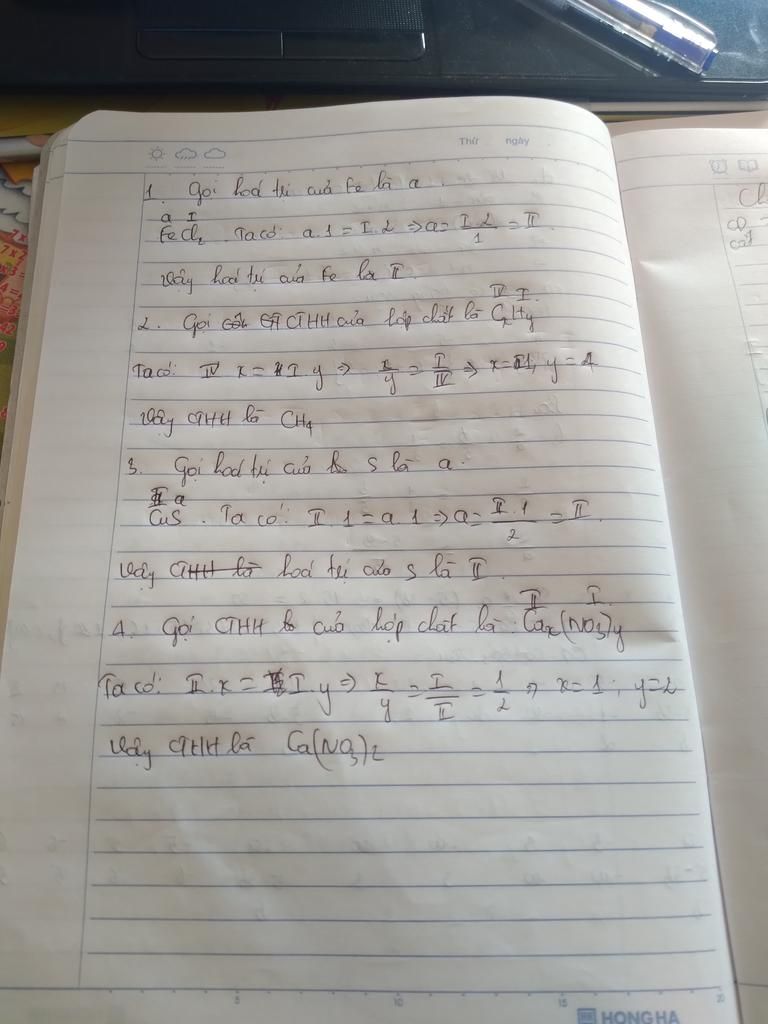 Thứ ngày
1. Gọi hoá trị của Fe là a.
a I
FeCl₂. Ta có: a.1 = I.2 ⇒ a = I.2/1 = II
Vậy hoá trị của Fe là II.
IV I
2. Gọi CTHH của hợp chất là CxHy
Ta có: IV x = I.y ⇒ x/y = I/IV ⇒ x=1; y=4
Vậy CTHH là CH₄
3. Gọi hoá trị của S là a.
II a
CuS. Ta có: II.1 = a.1 ⇒ a = II.1/2 = II.
Vậy CTHH là hoá trị của S là II.
II I
4. Gọi CTHH của hợp chất là Cax(NO₃)y
Ta có: II.x = I.y ⇒ x/y = I/II = 1/2 ⇒ x=1; y=2
Vậy CTHH là Ca(NO₃)₂
5 10 15 20
HONG HA